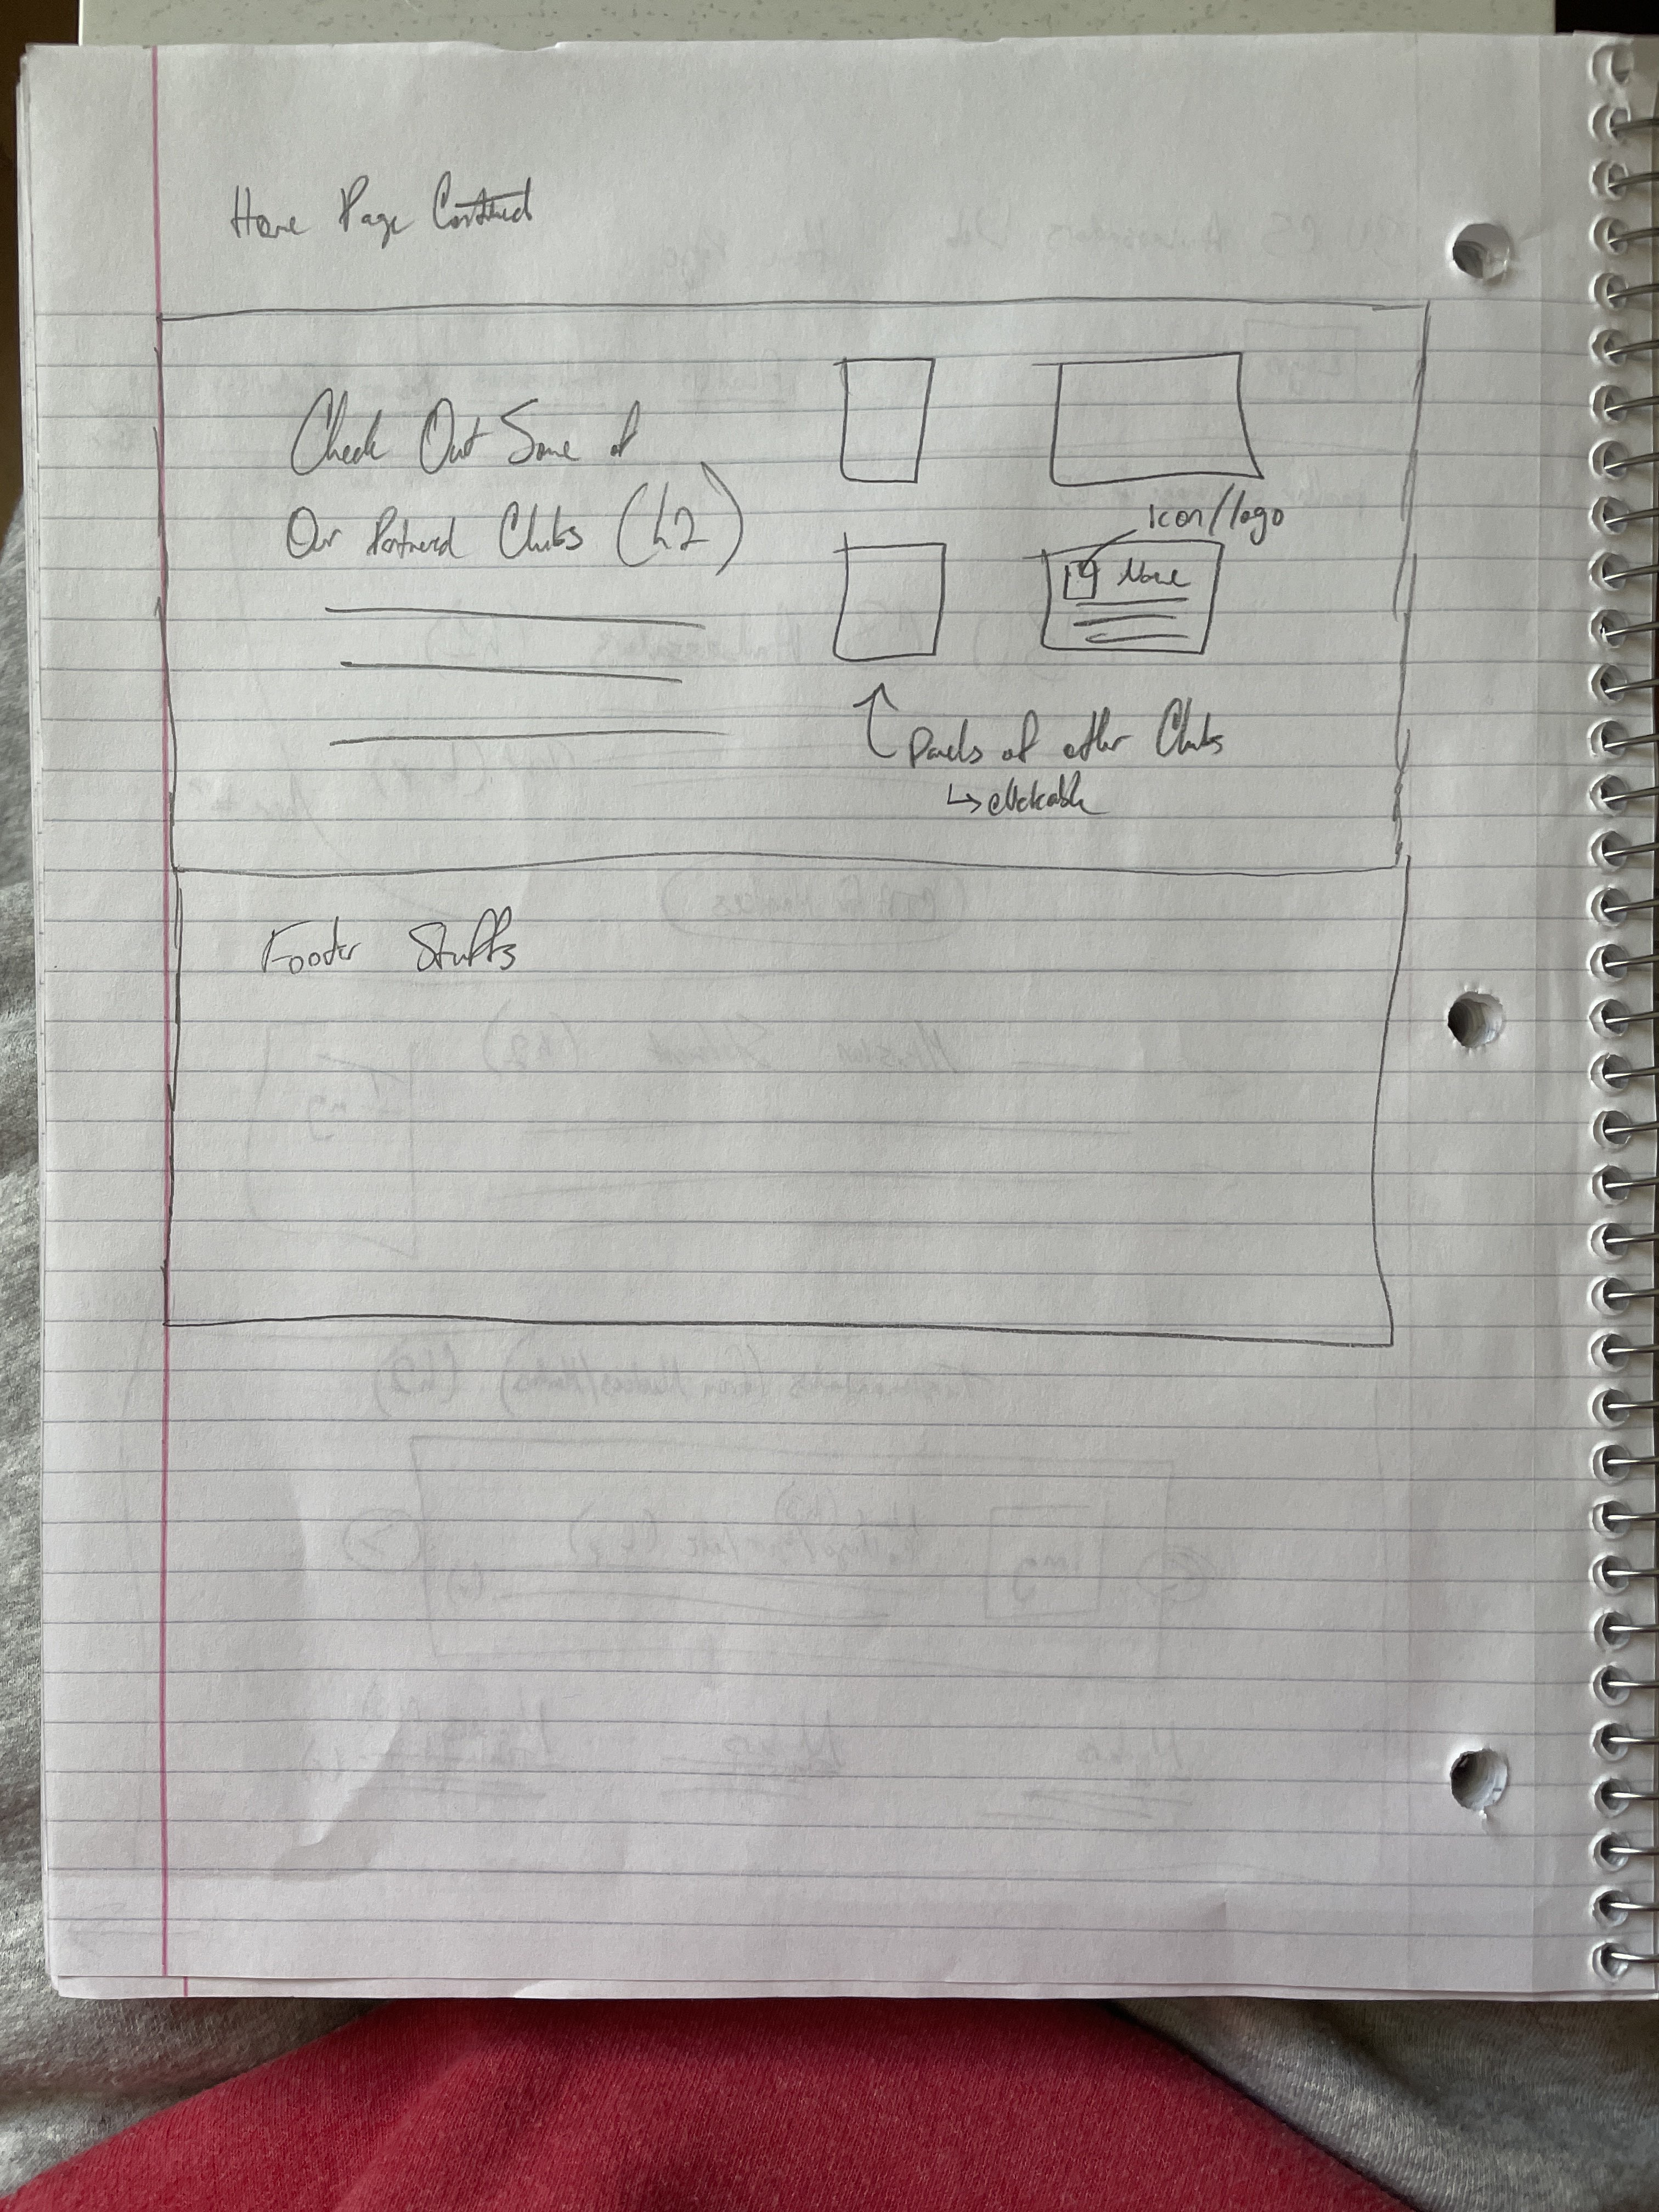 Home Page Continued
Check Out Some of
Our Partnered Clubs (h2)
icon/logo
Name
Panels of other Clubs
↳ clickable
Footer Stuffs